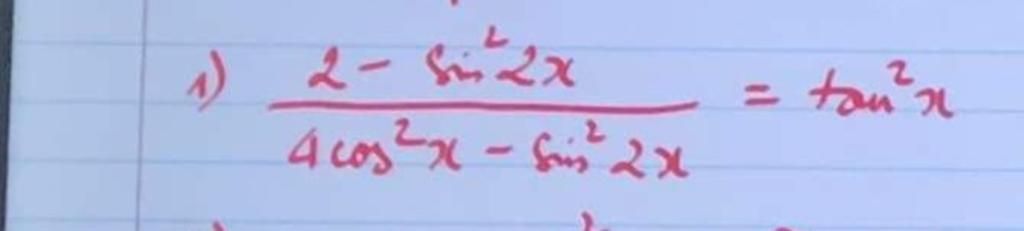 1) (2 - sin² 2x) / (4cos²x - sin² 2x) = tan²x